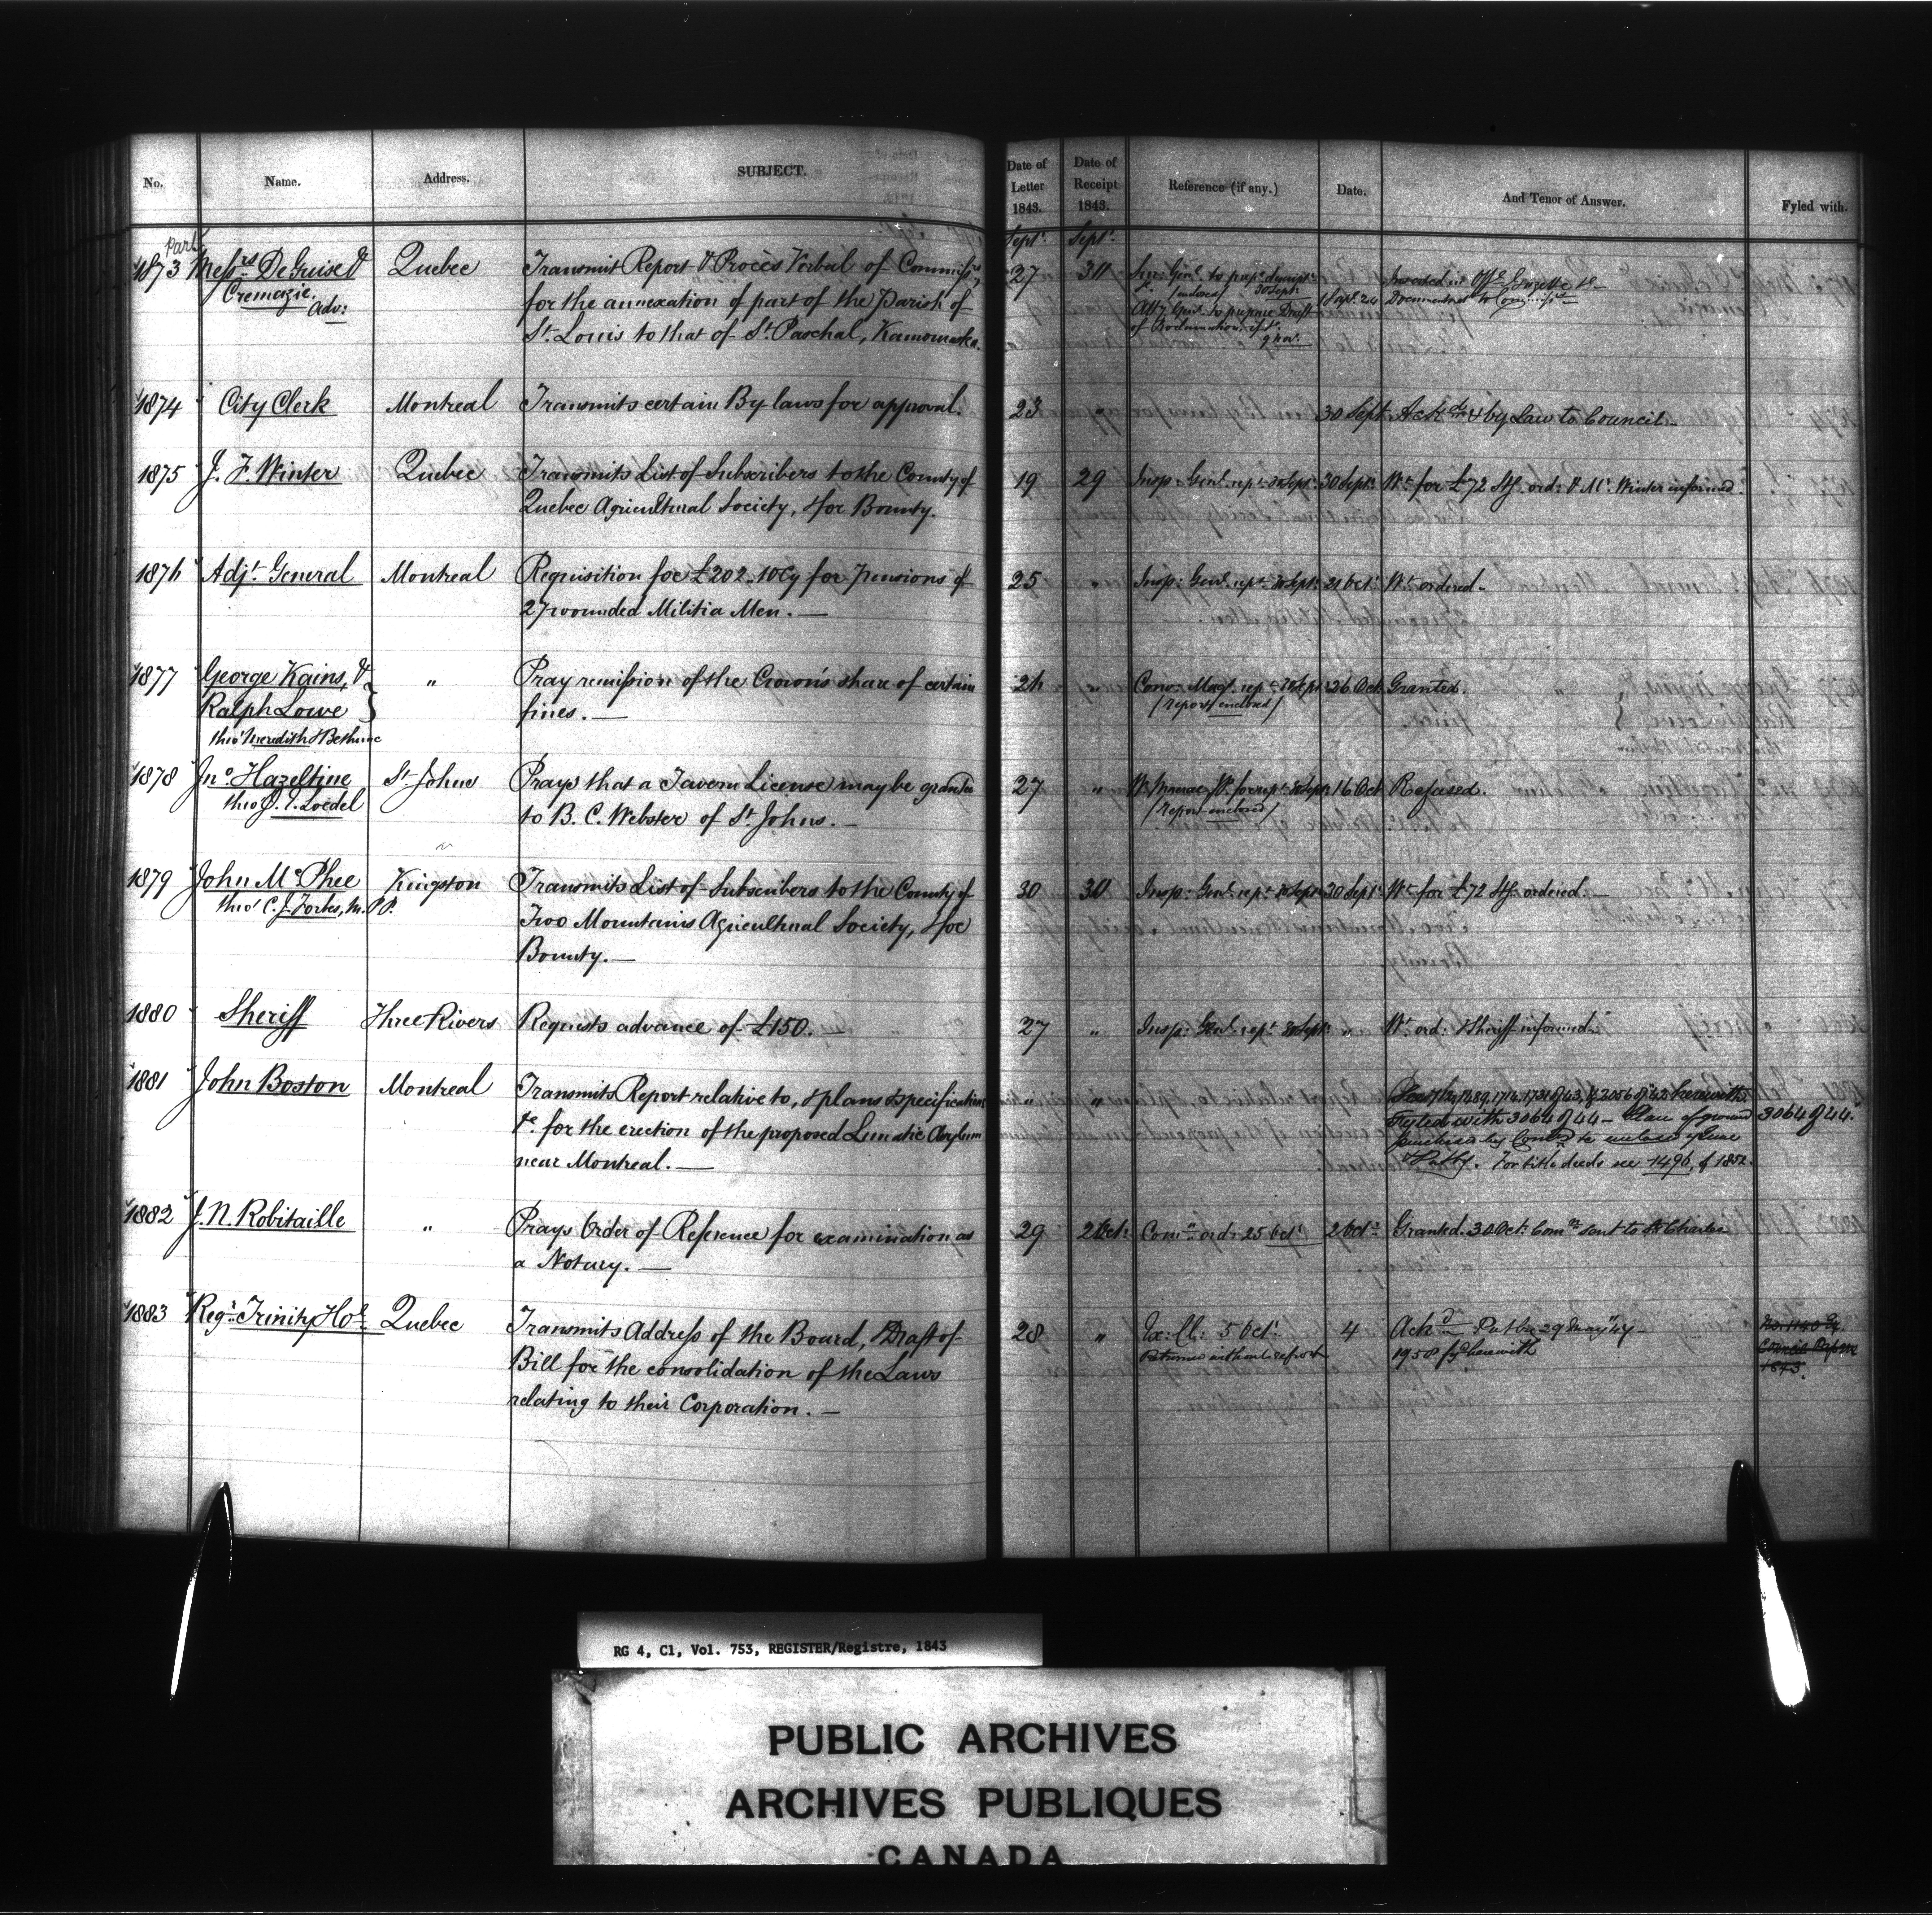 No. Name. Address. SUBJECT.
Date of Letter 1843. Date of Receipt 1843. Reference (if any.) Date. And Tenor of Answer. Fyled with.
Sept. Sept.
Part
1873 Messrs DeGuise & Quebec Transmit Report & Procès Verbal of Commissrs,
Cremazie. for the annexation of part of the Parish of
Adv: St. Louis to that of St. Paschal, Kamouraska.
27 30
Atty Genl. to prepare Draft
of Proclamation
9 Nov.
Inserted in Offl. Gazette
1874 City Clerk Montreal Transmits certain By laws for approval.
23 " 30 Sept. Ackd. & by Law to Council.
1875 J. F. Winter Quebec Transmits List of Subscribers to the County of
Quebec Agricultural Society, & for Bounty.
19 29 Insp: Genl. rept. 30 Sept. 30 Sept. Wt. for £72 Stg. ord: & Mr. Winter informed.
1876 Adjt. General Montreal Requisition for £202.10 Cy for Pensions of
27 wounded Militia Men. —
25 " Insp: Genl. rept. 30 Sept. 21 Oct. Wt. ordered.
1877 George Kains, & " Pray remission of the Crown's share of certain
Ralph Lowe } fines. —
thro' Meredith & Bethune
26 " rept. 26 Oct. Granted.
(report enclosed)
1878 Jno. Hazeltine St. Johns Prays that a Tavern License may be granted
thro' Loedel to B. C. Webster of St. Johns. —
27 " 16 Oct Refused.
(Report enclosed)
1879 John McPhee Kingston Transmits List of Subscribers to the County of
thro' C. J. Forbes, M.P.P. Two Mountains Agricultural Society, & for
Bounty. —
30 30 Insp: Genl. rept. 30 Sept. 30 Sept. Wt. for £72 Stg. ordered. —
1880 Sheriff Three Rivers Requests advance of £150. —
27 " Insp: Genl. rept. 30 Sept. " Wt. ord: & Sheriff informed.
1881 John Boston Montreal Transmits Report relative to, & plans & specifications
&c. for the erection of the proposed Lunatic Asylum
near Montreal. —
" " 1714, 1731 of 43, & 2056 of 42 herewith
Fyled with 3064 of 44 — Plan of ground 3064 of 44.
For title deeds see 1496, of 1852.
1882 J. N. Robitaille " Prays Order of Reference for examination as
a Notary. —
29 2 Oct. Comn. ord: 25 Oct. 2 Oct. Granted. 30 Oct: Comn. sent to St. Charles
1883 Regr. Trinity Ho. Quebec Transmits Address of the Board, & Draft of
Bill for the consolidation of the Laws
relating to their Corporation. —
28 " Ex: Cl: 5 Oct. 4 Ackd. Put by 29 May '44 —
Returned without report 1958 herewith
1843.
RG 4, C1, Vol. 753, REGISTER/Registre, 1843
PUBLIC ARCHIVES
ARCHIVES PUBLIQUES
CANADA